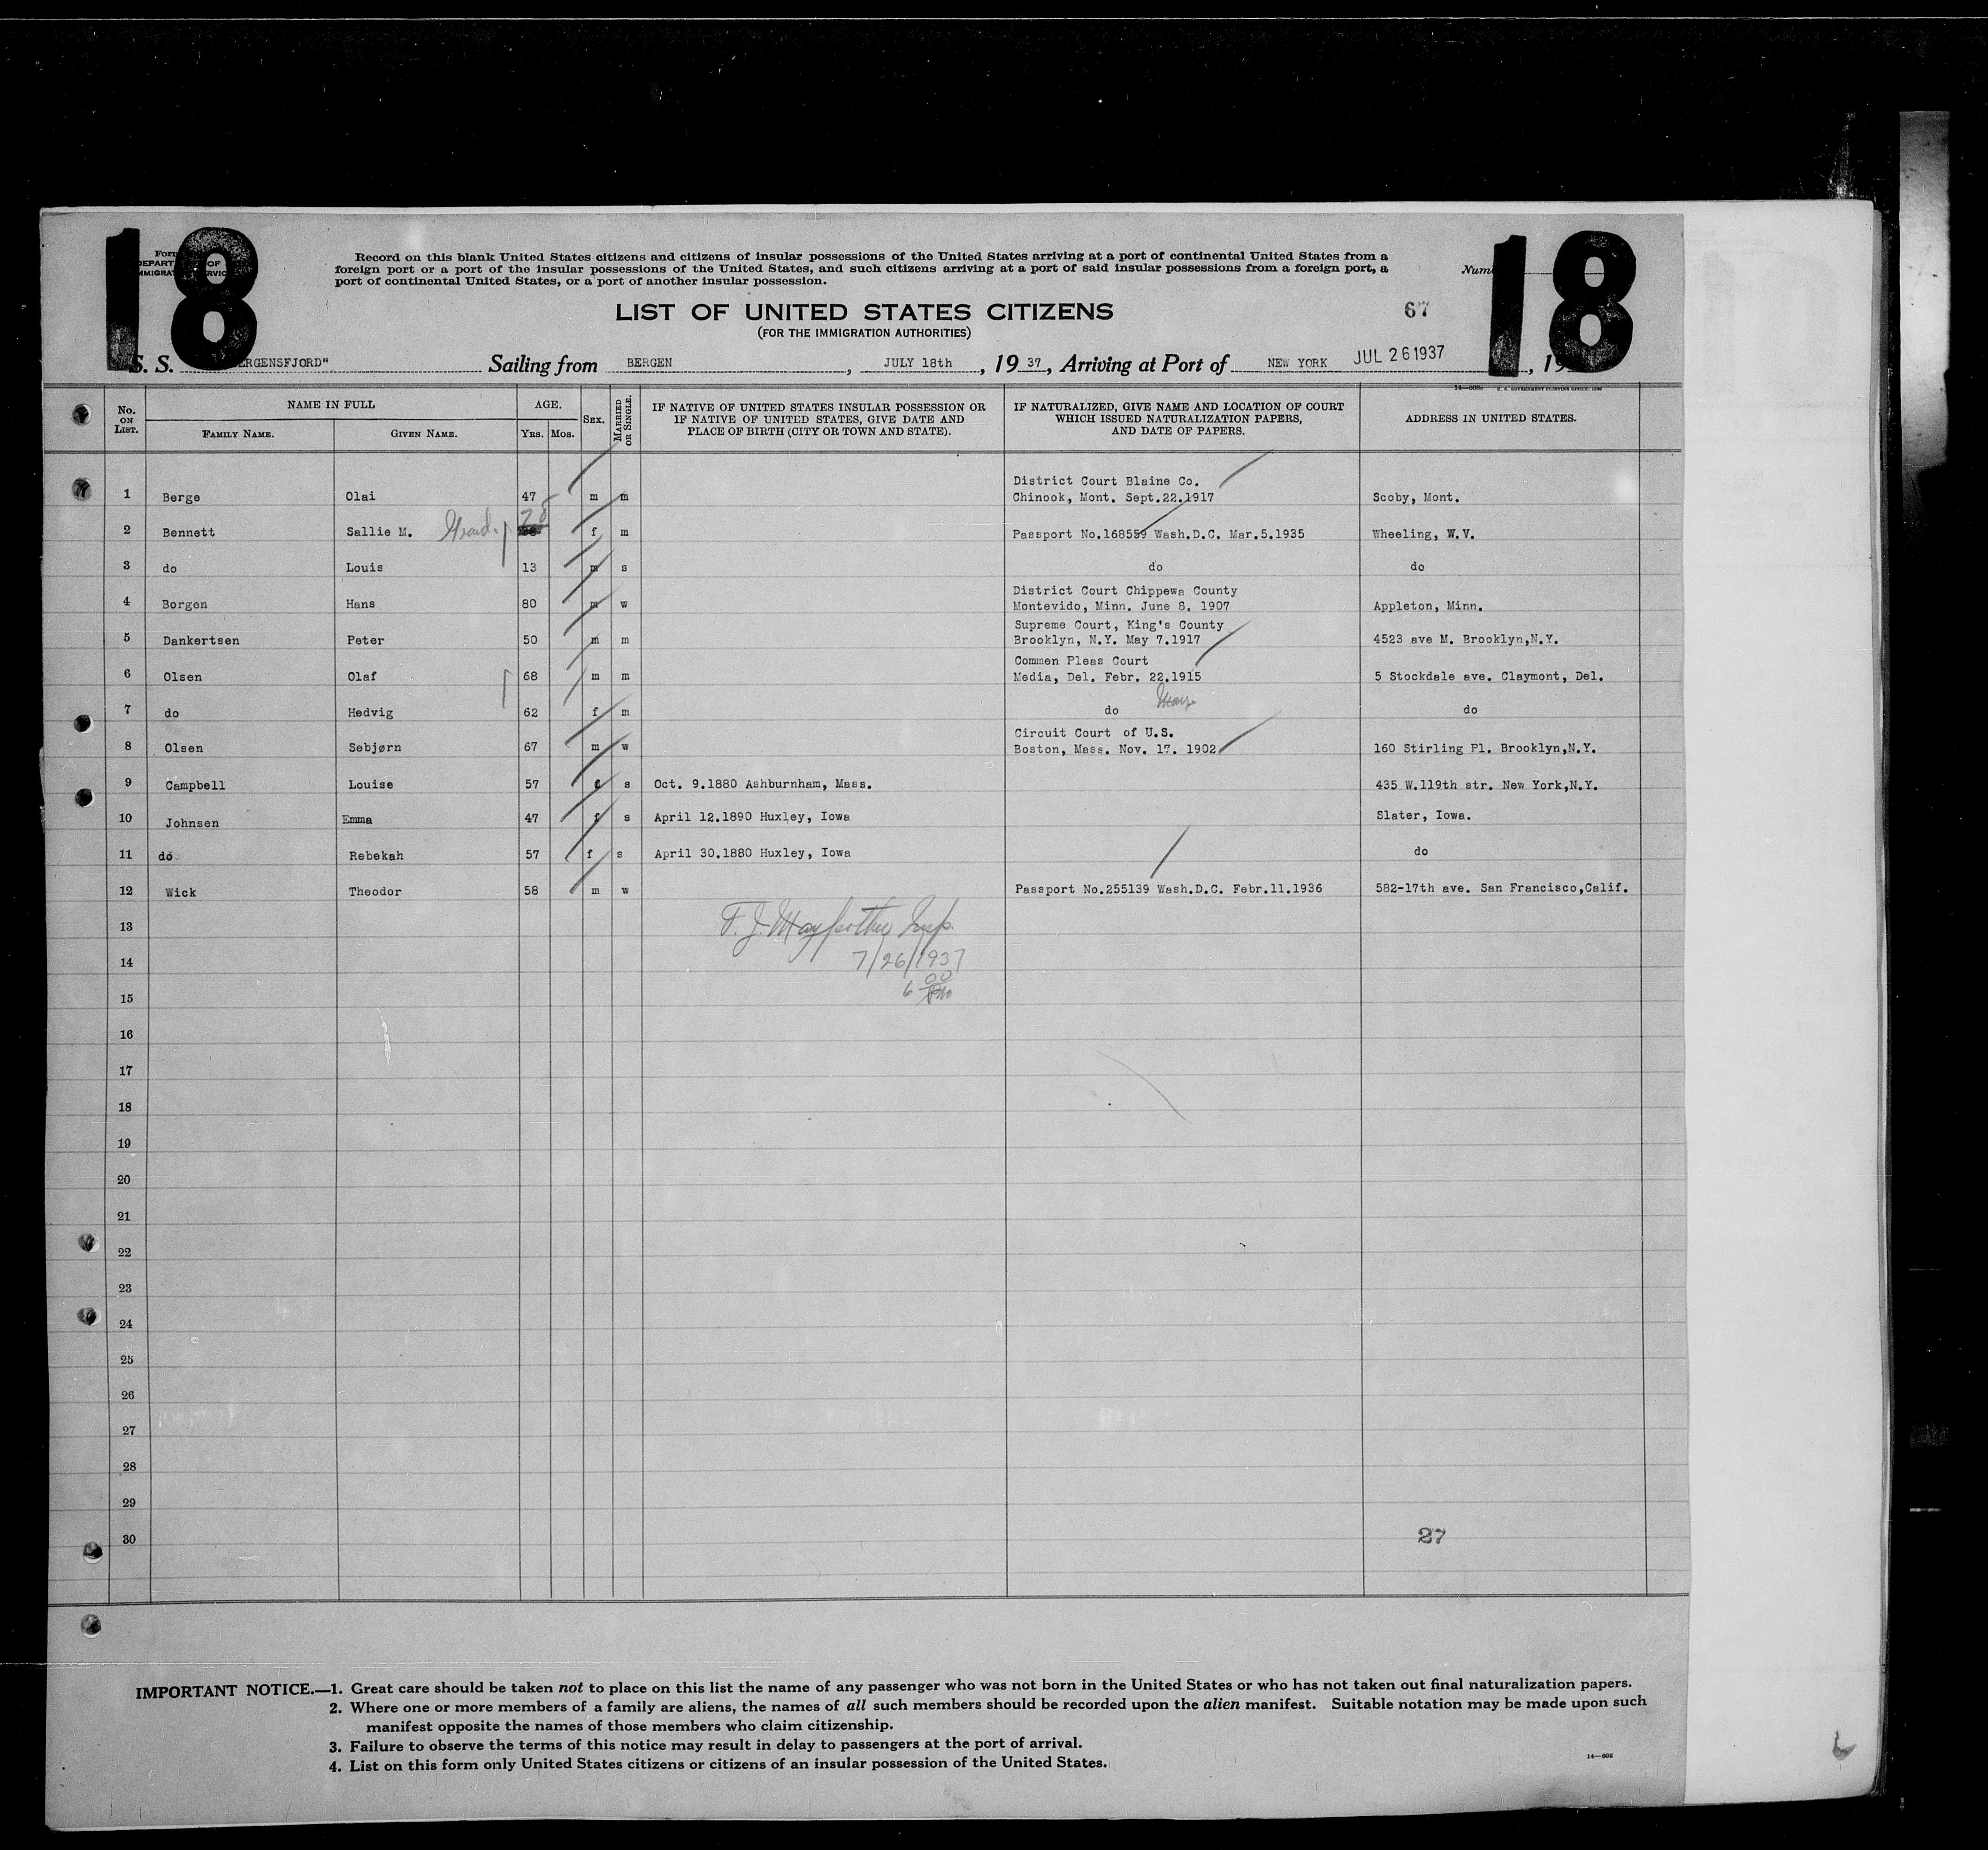 18
18
Record on this blank United States citizens and citizens of insular possessions of the United States arriving at a port of continental United States from a
foreign port or a port of the insular possessions of the United States, and such citizens arriving at a port of said insular possessions from a foreign port, a
port of continental United States, or a port of another insular possession.
LIST OF UNITED STATES CITIZENS
67
(FOR THE IMMIGRATION AUTHORITIES)
S. S. ERGENSFJORD" Sailing from BERGEN, JULY 18th, 19 37, Arriving at Port of NEW YORK JUL 26 1937, 19
No. ON LIST. NAME IN FULL AGE. SEX. MARRIED OR SINGLE. IF NATIVE OF UNITED STATES INSULAR POSSESSION OR IF NATIVE OF UNITED STATES, GIVE DATE AND PLACE OF BIRTH (CITY OR TOWN AND STATE). IF NATURALIZED, GIVE NAME AND LOCATION OF COURT WHICH ISSUED NATURALIZATION PAPERS, AND DATE OF PAPERS. ADDRESS IN UNITED STATES.
FAMILY NAME. GIVEN NAME. YRS. MOS.
District Court Blaine Co.
1 Berge Olai 47 m m Chinook, Mont. Sept.22.1917 Scoby, Mont.
2 Bennett Sallie M. f m Passport No.168559 Wash.D.C. Mar.5.1935 Wheeling, W.V.
3 do Louis 13 m s do do
District Court Chippewa County
4 Borgen Hans 80 m w Montevido, Minn. June 8. 1907 Appleton, Minn.
Supreme Court, King's County
5 Dankertsen Peter 50 m m Brooklyn, N.Y. May 7.1917 4523 ave M. Brooklyn,N.Y.
Commen Pleas Court
6 Olsen Olaf 68 m m Media, Del. Febr. 22.1915 5 Stockdale ave. Claymont, Del.
7 do Hedvig 62 f m do do
Circuit Court of U.S.
8 Olsen Sebjørn 67 m w Boston, Mass. Nov. 17. 1902 160 Stirling Pl. Brooklyn,N.Y.
9 Campbell Louise 57 f s Oct. 9.1880 Ashburnham, Mass. 435 W.119th str. New York,N.Y.
10 Johnsen Emma 47 f s April 12.1890 Huxley, Iowa Slater, Iowa.
11 do Rebekah 57 f s April 30.1880 Huxley, Iowa do
12 Wick Theodor 58 m w Passport No.255139 Wash.D.C. Febr.11.1936 582-17th ave. San Francisco,Calif.
13 F. J. Insp.
14 7/26/1937
15 6 00
16
17
18
19
20
21
22
23
24
25
26
27
28
29
30 27
IMPORTANT NOTICE.—1. Great care should be taken not to place on this list the name of any passenger who was not born in the United States or who has not taken out final naturalization papers.
2. Where one or more members of a family are aliens, the names of all such members should be recorded upon the alien manifest. Suitable notation may be made upon such
manifest opposite the names of those members who claim citizenship.
3. Failure to observe the terms of this notice may result in delay to passengers at the port of arrival.
4. List on this form only United States citizens or citizens of an insular possession of the United States.
14—608